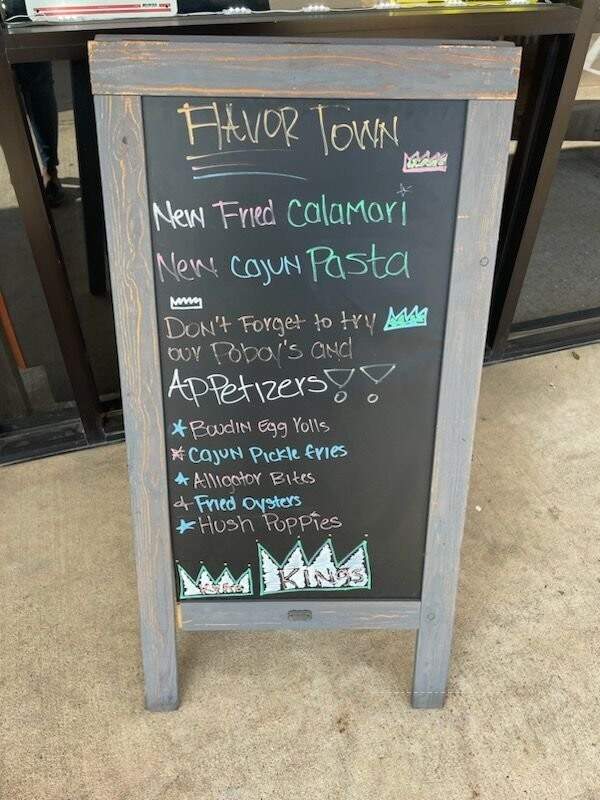 FLAVOR TOWN
New Fried Calamari
New Cajun Pasta
Don't Forget to try
our Poboy's and
Appetizers!!
* Boudin Egg rolls
* Cajun Pickle fries
* Alligator Bites
* Fried Oysters
* Hush Puppies
KINGS